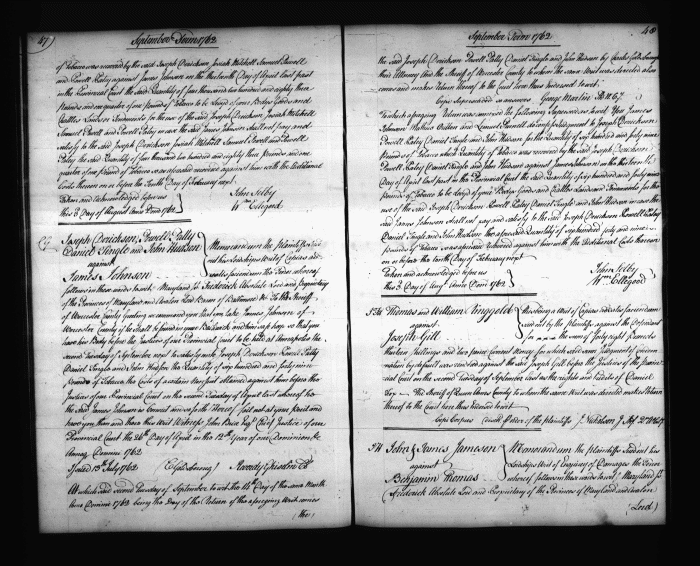 47)
September Term 1762
of Tobacco was recovered by the said Joseph Dorickson Josiah Mitchell Samuel Powell
and Powell Patey against James Johnson on the thirteenth Day of April last past
in the Provincial Court the said Quantity of four thousand two hundred and eighty three
Pounds and one quarter of one pound of Tobacco to be levyed of your Bodys Goods and
Chattles Lands or Tenements for the use of the said Joseph Dorickson Josiah Mitchell
Samuel Powell and Powell Patey in case the said James Johnson shall not pay and
satisfy to the said Joseph Dorickson Josiah Mitchell Samuel Powell and Powell
Patey the said Quantity of four thousand two hundred and eighty three pounds and one
quarter of one pound of Tobacco so as aforesaid recovered against him with the Additional
Costs thereon on or before the Tenth Day of February next
Taken and acknowledged before us
this 3 Day of August Anno Dom 1762
John Selby
Wm Ellegood
Joseph Dorickson, Powell Patty
Daniel Tingle and John Hudson
against
James Johnson
Memorandum the Plaintiffs
out his Lordships Writ of Capias ad
satisfaciendum the Tenor whereof
follows in these words to wit Maryland Ss Frederick Absolute Lord and Proprietary
of the Provinces of Maryland and Avalon Lord Baron of Baltimore &c To the Sheriff
of Worcester County Greeting we command you that you take James Johnson of
Worcester County if he shall be found in your Bailiwick and him safe keep so that you
have his Body before the Justices of our Provincial Court to be held at Annapolis the
second Tuesday of September next to satisfy unto Joseph Dorickson Powell Patty
Daniel Tingle and John Hudson the Quantity of six hundred and forty nine
Pounds of Tobacco the Costs of a certain Nonsuit obtained against him before the
Justices of our Provincial Court on the second Tuesday of April last whereof
the said James Johnson is Convict and so forth Hereof fail not at your Peril and
have you then and there this Writ Witness John Brice Esqr Chief Justice of our
Provincial Court the 24th Day of April in the 12th Year of our Dominion &c
Annoq Domini 1762
Issued 13th July 1762
Reverdy Ghiselin Clk
At which said second Tuesday of September to wit the 14th Day of the same Month
Anno Domini 1762 being the Day of the Return of the aforegoing Writ comes
(the)
September Term 1762
48
the said Joseph Dorickson Powell Patty Daniel Tingle and John Hudson by
their Attorney and the Sheriff of Worcester County to whom the same Writ was directed also
comes and makes Return to the Court here thus Endorsed to wit
Cepi Superseded as answers
To which aforegoing Return was annexed the following Supersedeas to wit You James
Johnson Mathias Outten and Samuel Powell do confess Judgment to Joseph Dorickson
Powell Patey Daniel Tingle and John Hudson for the Quantity of six hundred and forty nine
Pounds of Tobacco which Quantity of Tobacco was recovered by the said Joseph Dorickson
Powell Patey Daniel Tingle and John Hudson against James Johnson on the thirteenth
Day of April last past in the Provincial Court the said Quantity of six hundred and forty nine
pounds of Tobacco to be levyed of your Bodys Goods and Chattles Lands or Tenements for the
use of the said Joseph Dorickson Powell Patey Daniel Tingle and John Hudson in case the
said James Johnson shall not pay and satisfy to the said Joseph Dorickson Powell Patey
Daniel Tingle and John Hudson the aforesaid Quantity of six hundred forty and nine
pounds of Tobacco so as aforesaid obtained against him with the Additional Costs thereon
on or before the tenth Day of February next
Taken and acknowledged before us
this 3 Day of Augt Anno Dom 1762
John Selby
Wm Ellegood
Thomas and William Ringgold
against
Joseph Gill
Reversing a Writ of Capias ad satisfaciendum
sued out by the plaintiffs against the Defendant
for the sum of forty eight pounds
thirteen shillings and two pence Current Money for which sd sum Judgment of Condem
nation by default was rendered against the said Joseph Gill before the Justices of the Provin
cial Court on the second Tuesday of September last as the rights and Credits of Daniel
The Sheriff of Queen Anns County to whom the said Writ was directed makes Return
thereof to the Court here thus Endorsed to wit
Cepi Corpus
Order of the plaintiffs J. Nicholson
John & James Jameson
against
Benjamin Thomas
Memorandum the Plaintiffs sued out his
Lordships Writ of Enquiry of Damages the Tenor
whereof follows in these words to wit Maryland Ss
Frederick Absolute Lord and Proprietary of the Provinces of Maryland and Avalon
(Lord)